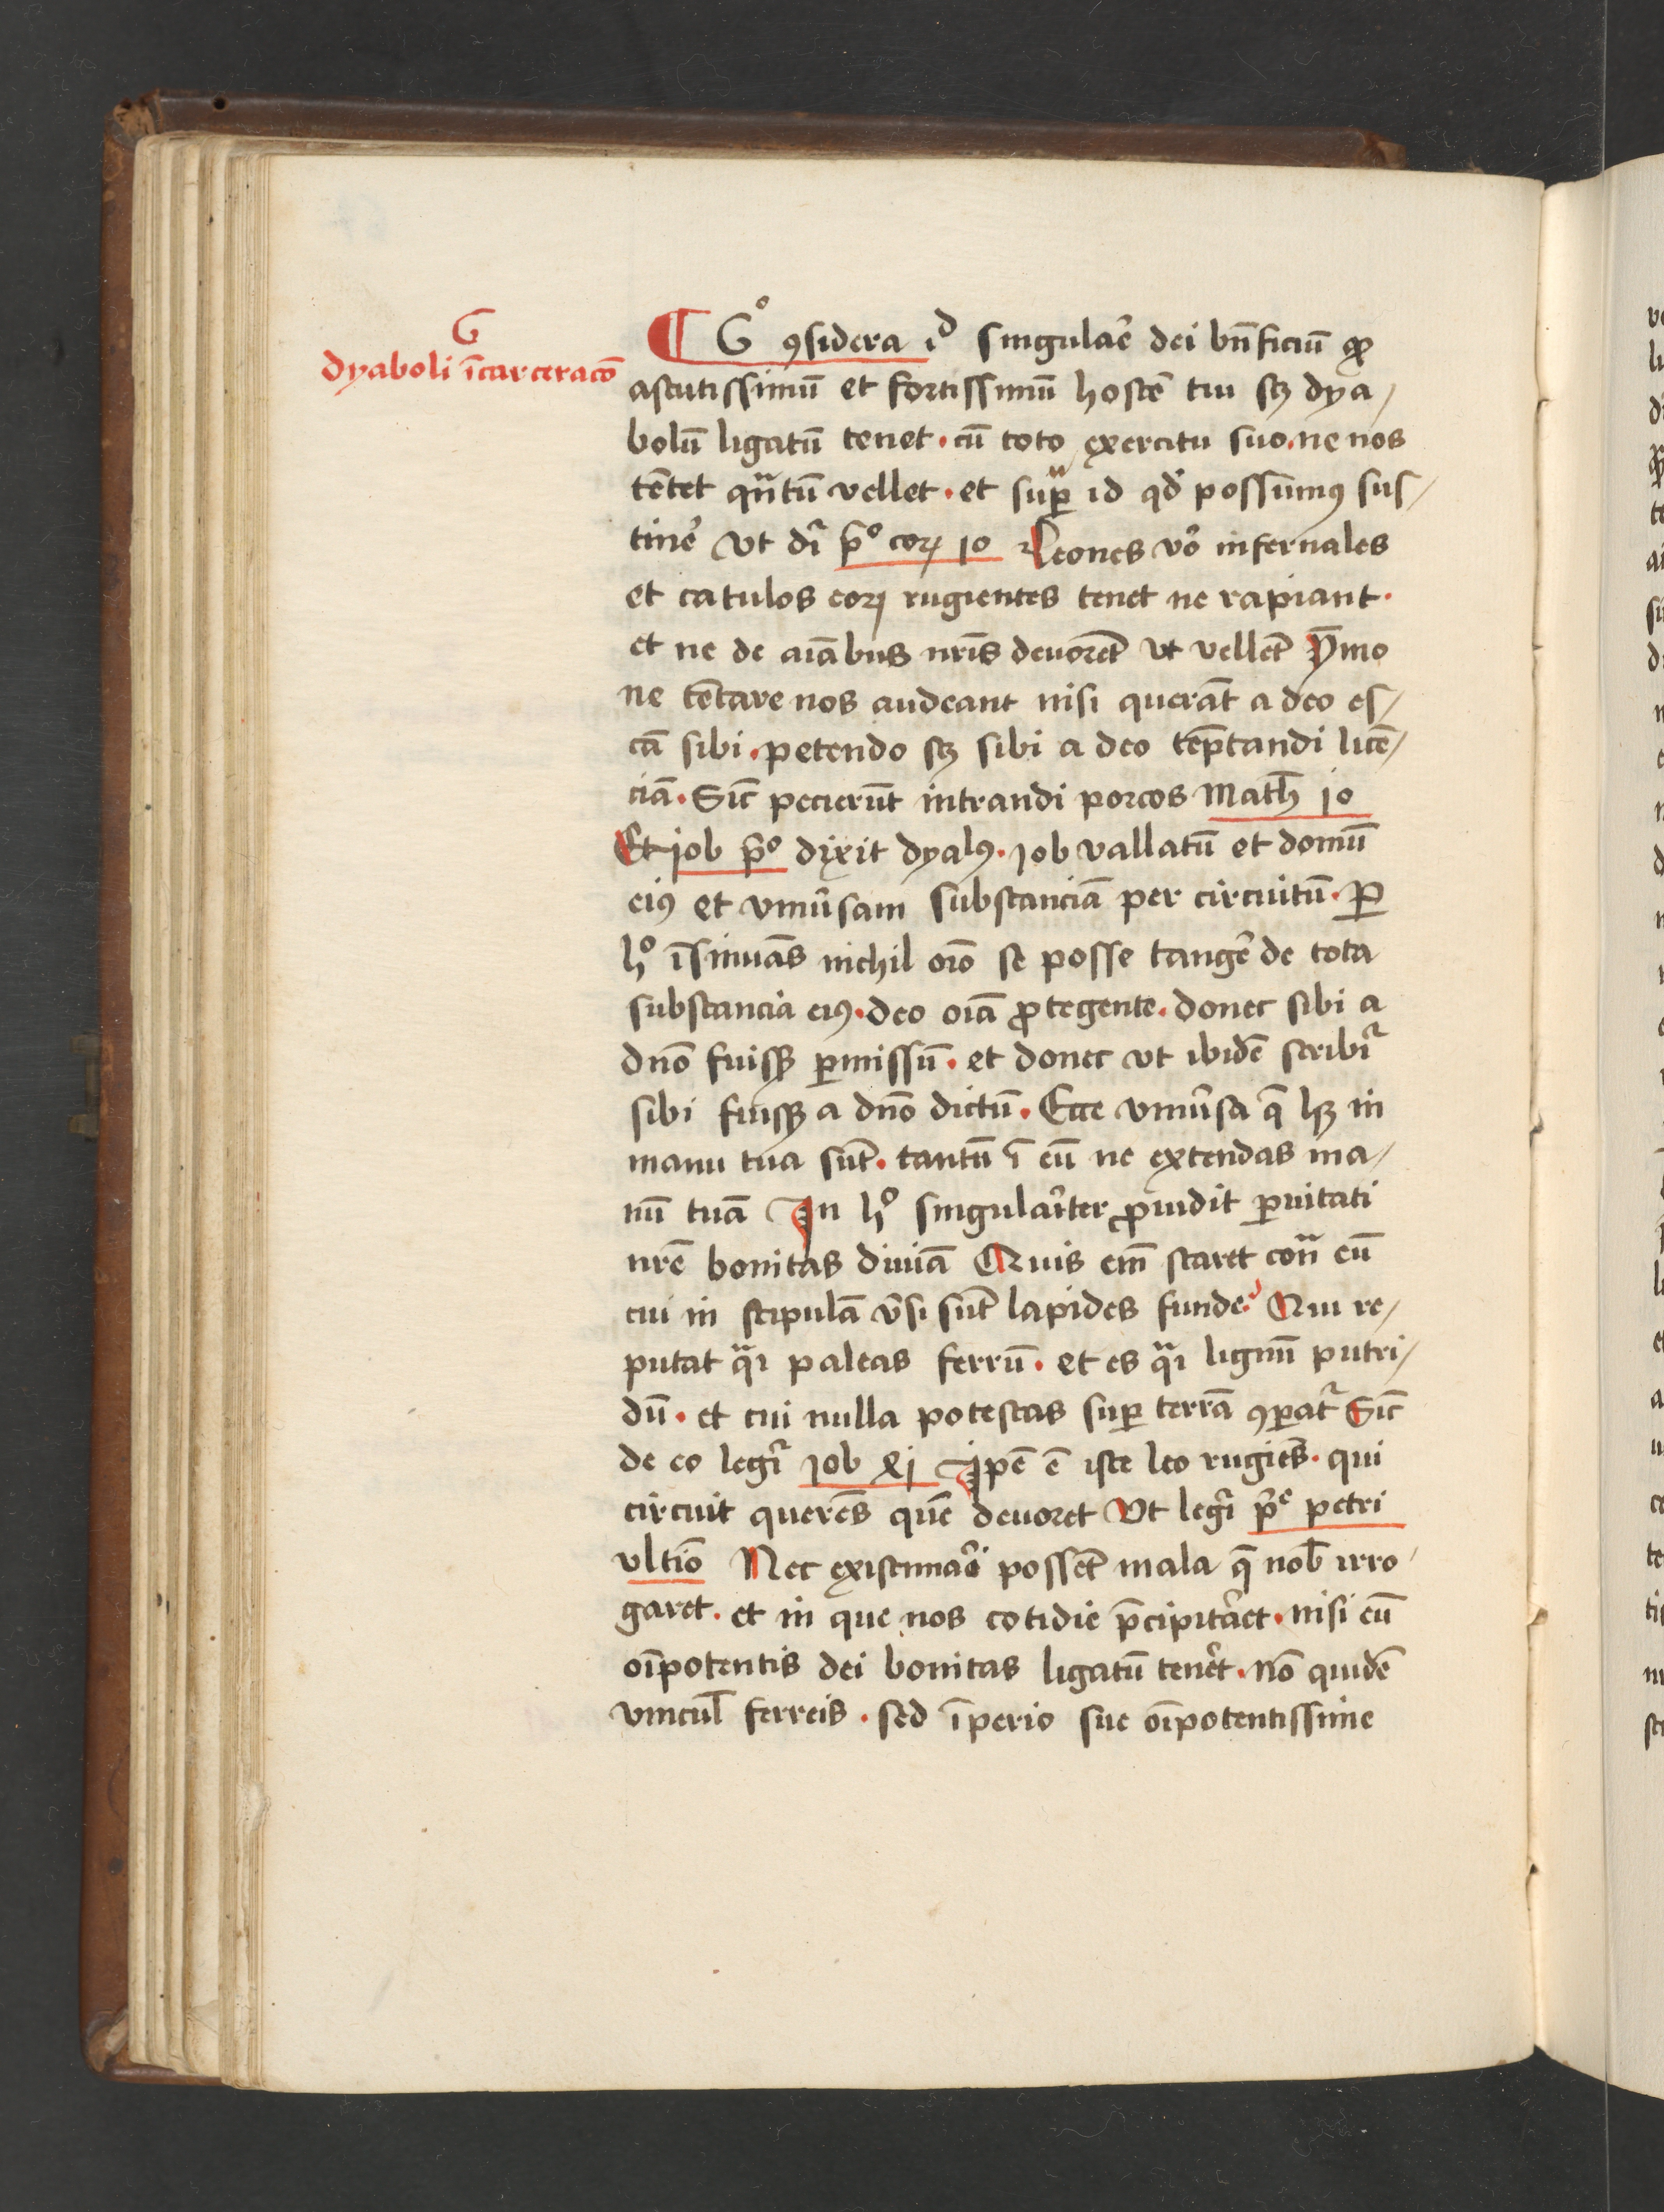 G
dyaboli īcarceracō
¶ Gº ꝯsidera id singularē dei bn̄ficiū ꝙ
astutissimū et fortissimū hostē tuū scꝫ dya/
bolū ligatū tenet · cū toto exercitu suo · ne nos
tētet qͣntū vellet · et supͣ id qđ possumꝰ sus/
tinē vt dr̄ pͥº coꝝ 10 Leones vō infernales
et catulos eoꝝ rugientes tenet ne rapiant ·
et ne de aīabus nr̄is deuorēt vt vellēt Ymmo
ne tētare nos audeant nisi querāt a deo es/
cā sibi · petendo scꝫ sibi a deo tēptandi licē/
ciā · Sic̄ pecierūt intrandi porcos Math̄ 10
Et job pͥº dixit dyalꝰ · job vallatū et domū
eiꝰ et vniūsam substanciā per circuitū · Ꝑ
hº īsinuās nichil oīo se posse tangē de tota
substancia eiꝰ · deo oīa ꝓtegente · donec sibi a
dn̄o fuisꝫ ꝑmissū · et donec vt ibidē scribit᷑
sibi fuisꝫ a dn̄o dictū · Ecce vniūsa q̄ hꝫ in
manu tua sūt · tantū ī eū ne extendas ma/
nū tuā In hº singularīter ꝓuidit ꝑuitati
nr̄e bonitas diuīa Quis em̄ staret contͣ eū
cui in stipulā v̄si sūt lapides funde? Qui re/
putat qͣi paleas ferrū · et es qͣi lignū putri/
dū · et cui nulla potestas suꝑ terrā ꝯꝑat᷑ Sic̄
de eo legr̄ job xlj Ipē ē iste leo rugiēs · qui
circuit querēs quē deuoret Vt legr̄ pͥᵉ petri
vltīo Nec existimarī possēt mala q̄ nob̄ irro/
garet · et in que nos cotidie p̄cipitāet · nisi eū
oīpotentis dei bonitas ligatū tenēt · nō quidē
vincul̄ ferreis · sed īperio sue oīpotentissime